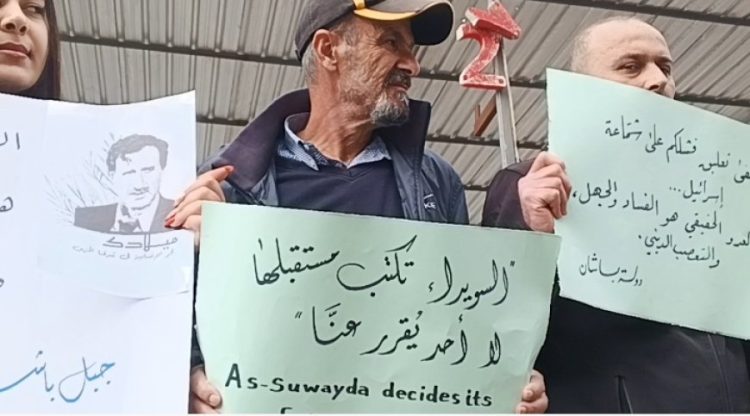 ميلادك
جبل باش
"السويداء تكتب مستقبلها
لا أحد يُقرر عنَّا"
As-Suwayda decides its
تعليق فشلكم على شماعة
إسرائيل...
الحقيقي هو الفساد والجهل،
والتعصب الديني.
دولة باشان